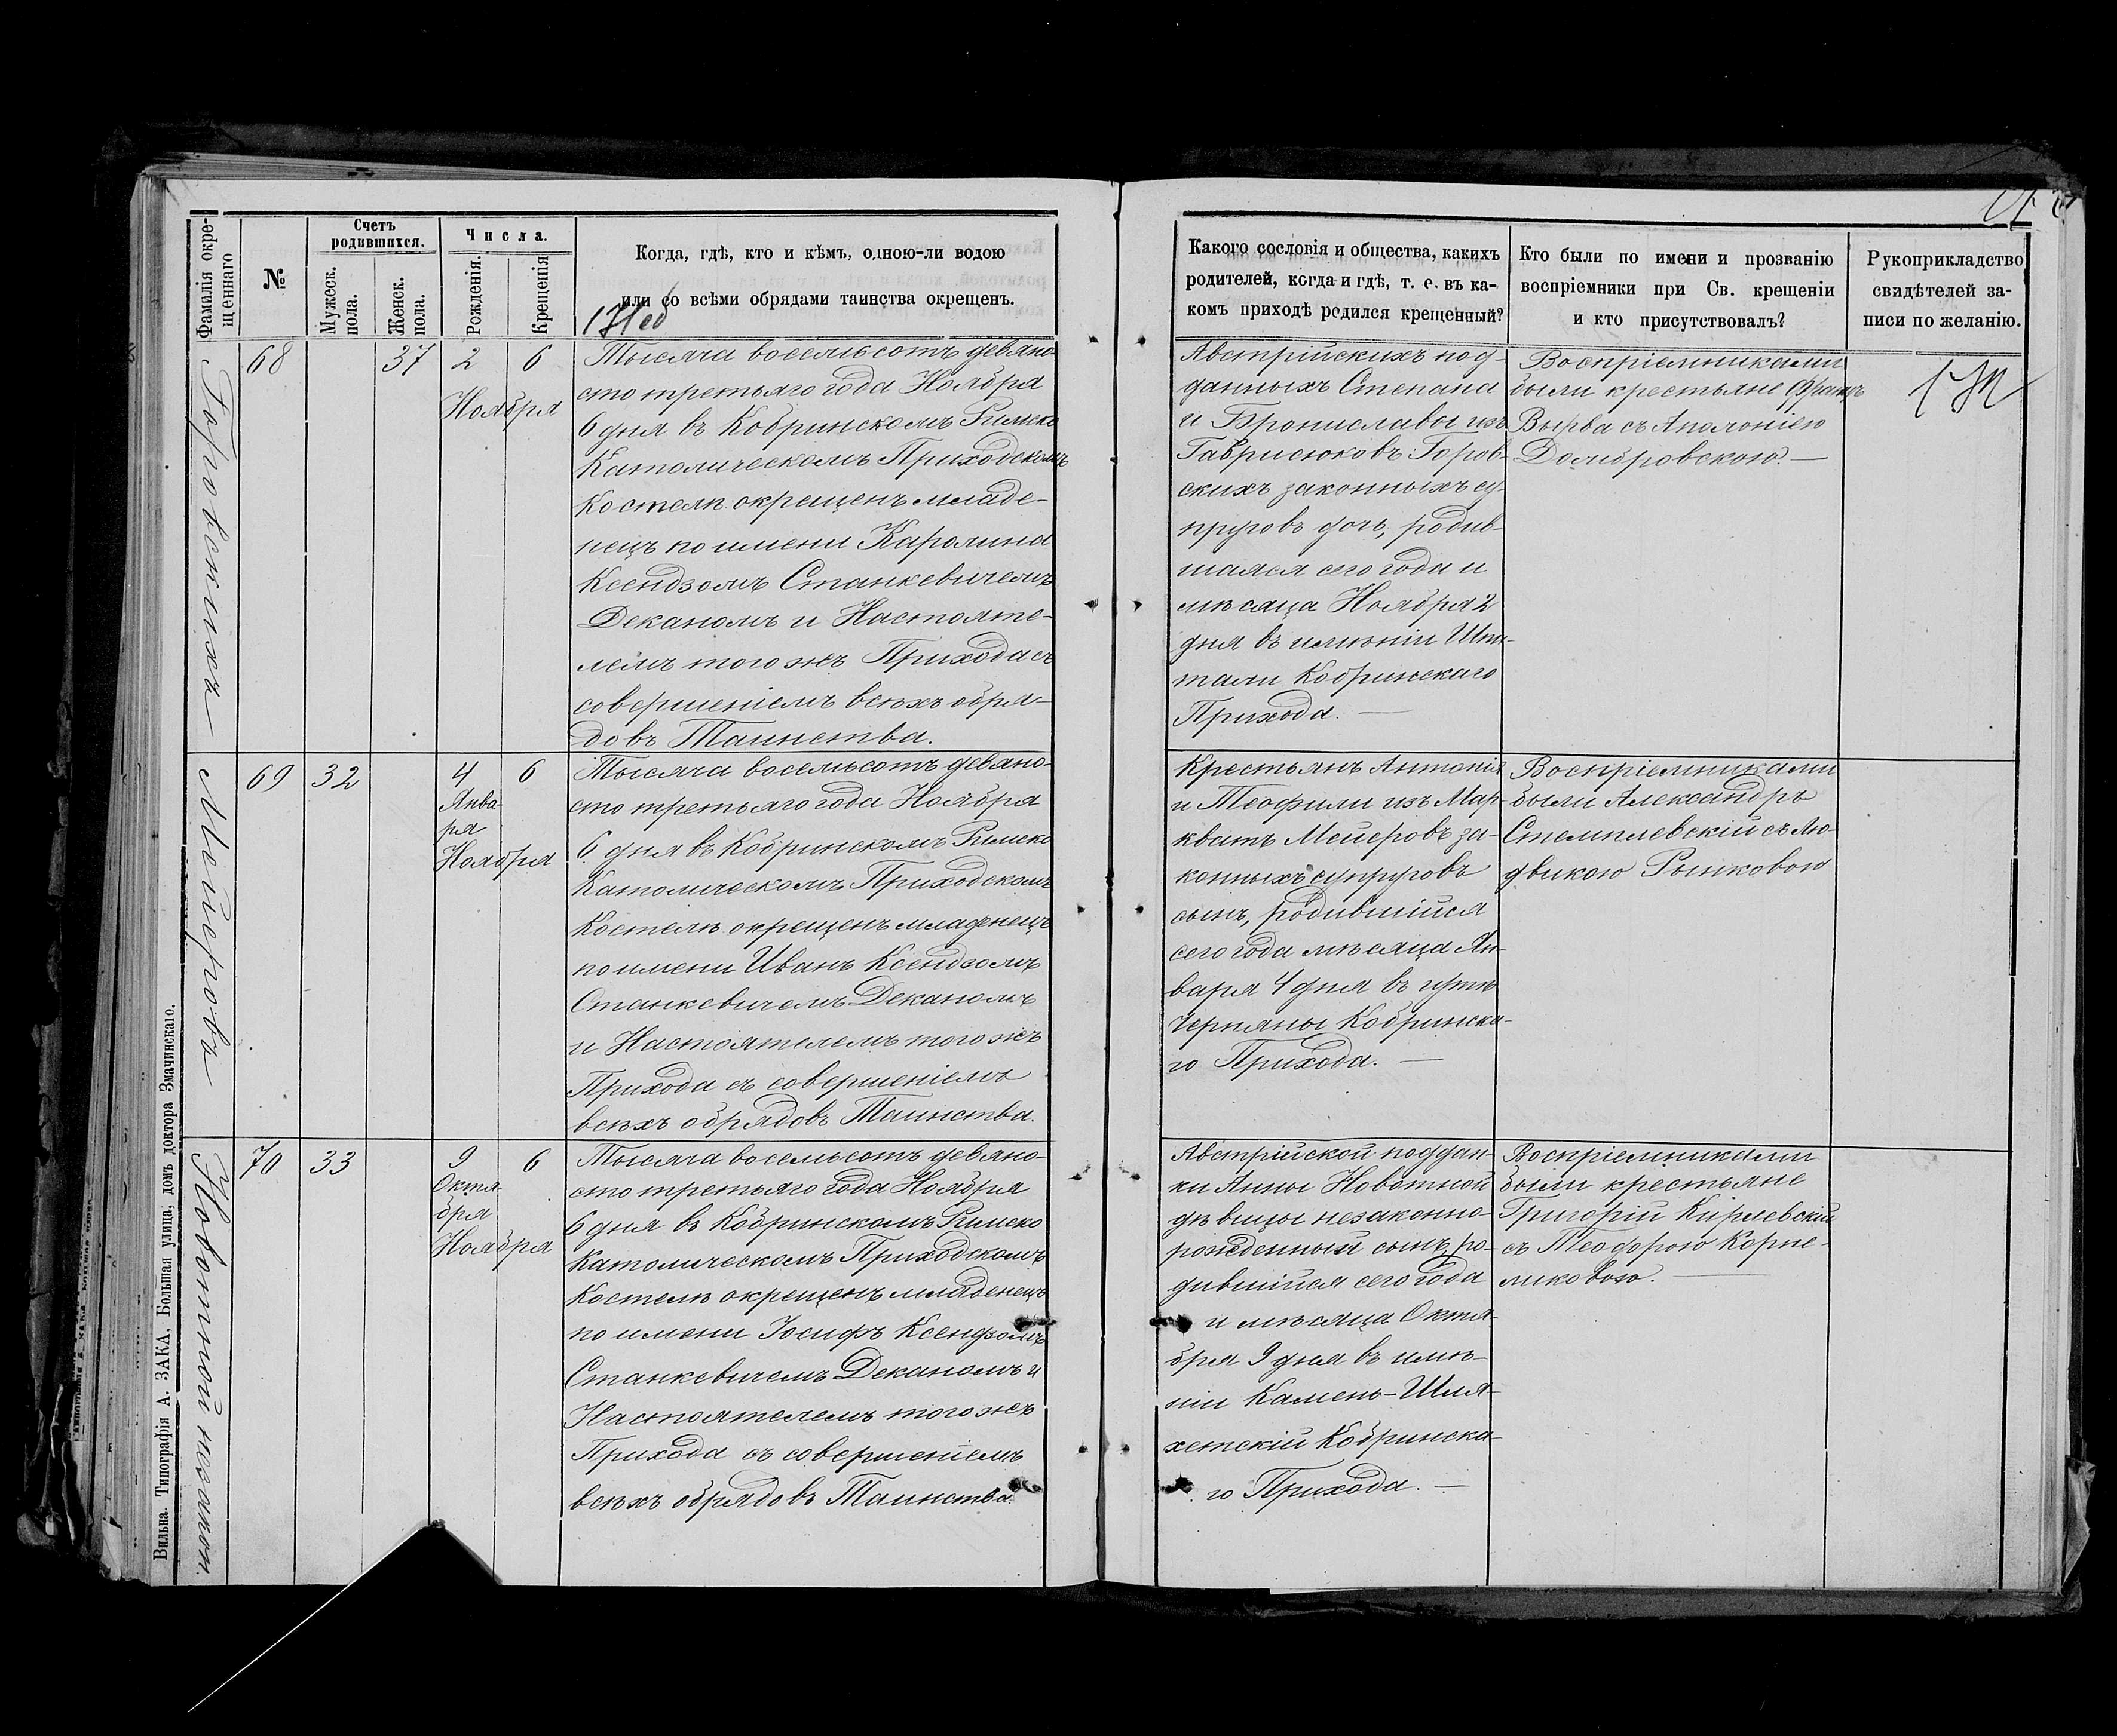 Фамилія окре-
щеннаго
№
Счетъ
родившихся.
Мужеск.
пола.
Женск.
пола.
Числа.
Рожденія.
Крещенія
Когда, гдѣ, кто и кѣмъ, одною-ли водою
или со всѣми обрядами таинства окрещенъ.
Горовскихъ
68
37
2
6
Ноября
Тысяча восемьсотъ девяно-
сто третьяго года Ноября
6 дня въ Кобринскомъ Римско
Католическомъ Приходскомъ
Костелѣ окрещенъ младе-
нецъ по имени Каролина
Ксендзомъ Станкевичемъ
Деканомъ и Настояте-
лемъ того жъ Прихода съ
совершеніемъ всѣхъ обря-
довъ Таинства.
Мейеровъ
69
32
4
6
Янва-
ря
Ноября
Тысяча восемьсотъ девяно-
сто третьяго года Ноября
6 дня въ Кобринскомъ Римско
Католическомъ Приходскомъ
Костелѣ окрещенъ младенецъ
по имени Иванъ Ксендзомъ
Станкевичемъ Деканомъ
и Настоятелемъ того жъ
Прихода съ совершеніемъ
всѣхъ обрядовъ Таинства.
Новотной незакон.
70
33
9
6
Октя-
бря
Ноября
Тысяча восемьсотъ девяно-
сто третьяго года Ноября
6 дня въ Кобринскомъ Римско
Католическомъ Приходскомъ
Костелѣ окрещенъ младенецъ
по имени Іосифъ Ксендзомъ
Станкевичемъ Деканомъ и
Настоятелемъ того жъ
Прихода съ совершеніемъ
всѣхъ обрядовъ Таинства.
Вильна. Типографія А. ЗАКА, Большая улица, домъ доктора Змачинскаго.
Какого сословія и общества, какихъ
родителей, когда и гдѣ, т. е. въ ка-
комъ приходѣ родился крещенный?
Кто были по имени и прозванію
воспріемники при Св. крещеніи
и кто присутствовалъ?
Рукоприкладство
свидѣтелей за-
писи по желанію.
Австрійскихъ под-
данныхъ Степана
и Брониславы изъ
Гаврисюковъ Горов-
скихъ законныхъ су-
пруговъ дочь, родив-
шаяся сего года и
мѣсяца Ноября 2
дня въ имѣніи Шпи-
тали Кобринскаго
Прихода. —
Воспріемниками
были крестьяне Францъ
Вырва съ Аполоніею
Домбровскою. —
Крестьянъ Антонія
и Теофили изъ Мар-
квать Мейеровъ за-
конныхъ супруговъ
сынъ, родившійся
сего года мѣсяца Ян-
варя 4 дня въ
Черняны Кобринска-
го Прихода. —
Воспріемниками
были Александръ
Стемплевскій съ Лю-
двикою Рынковою
Австрійской поддан-
ки Анны Новотной
дѣвицы незаконно-
рожденный сынъ, ро-
дившійся сего года
и мѣсяца Октя-
бря 9 дня въ имѣ-
ніи Камень-Шля-
хетскій Кобринска-
го Прихода. —
Воспріемниками
были крестьяне
Григорій Кирлевскій
съ Теофорою Корне-
люковою. —